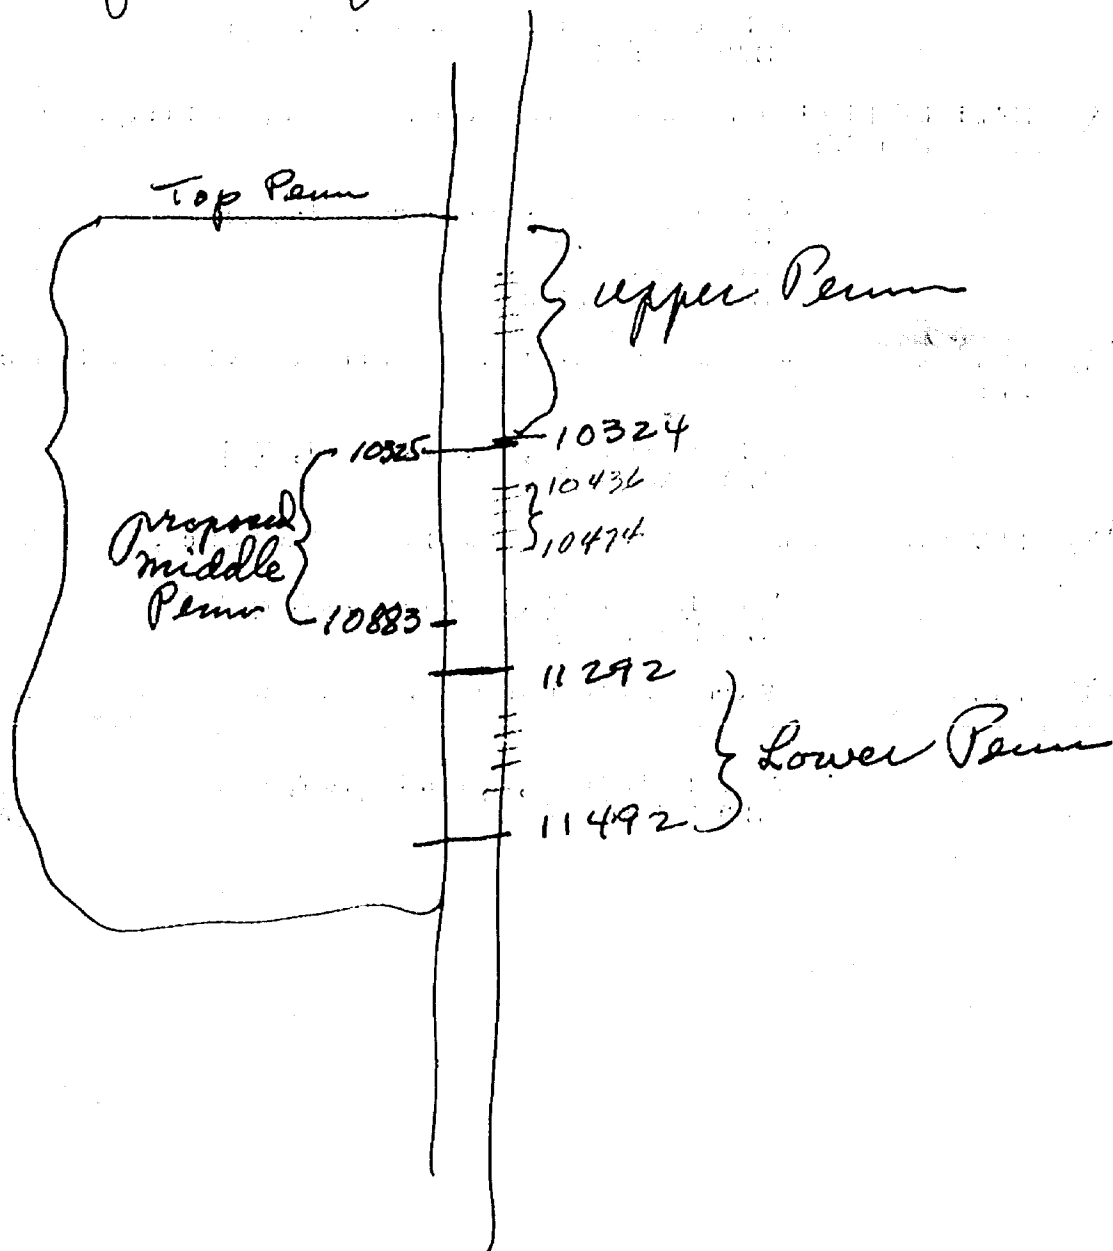 Top Penn
upper Penn
10324
10325
10436
proposed
middle
Penn
10474
10883
11292
Lower Penn
11492